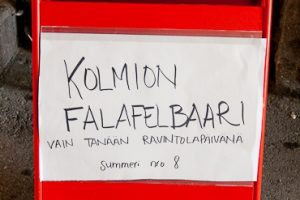 KOLMION
FALAFELBAARI
VAIN TÄNÄÄN RAVINTOLAPÄIVÄNÄ
summeri nro 8